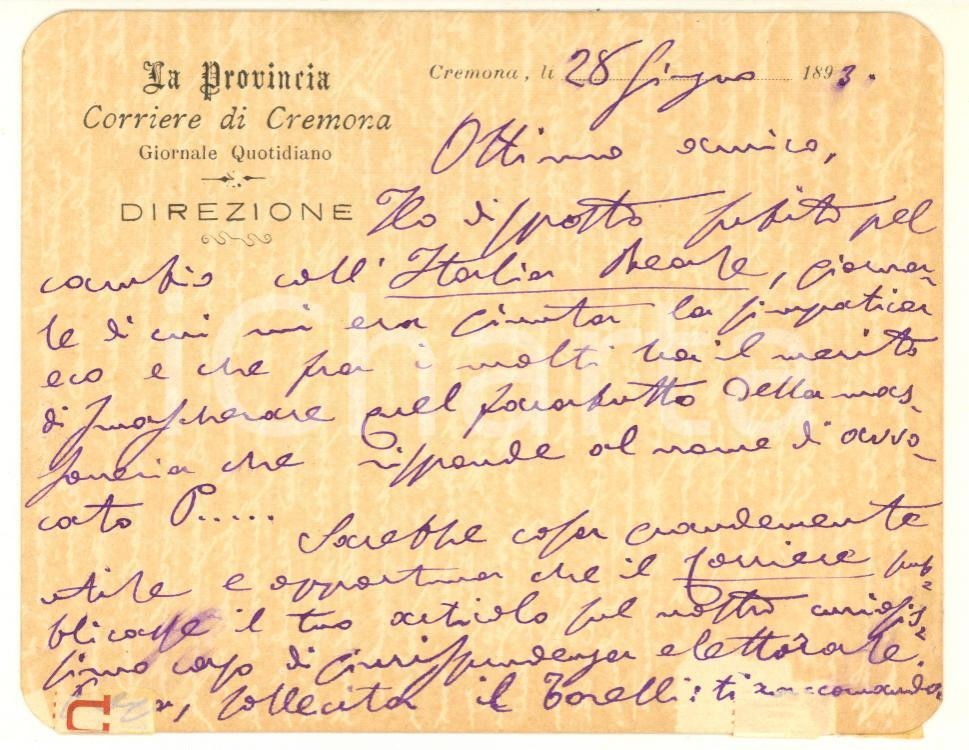 La Provincia
Corriere di Cremona
Giornale Quotidiano
DIREZIONE
Cremona, li 28 Giugno 1893.
Ottimo amico,
Ho disposto subito pel
cambio coll' Italia Reale, giorna-
le di cui mi era giunta la simpatica
eco e che fra i molti ha il merito
di smascherare quel farabutto della mas-
soneria che risponde al nome di avvo-
cato P.....
Sarebbe cosa grandemente
utile e opportuna che il Corriere pub-
blicasse il tuo articolo sul nostro curiosis-
simo caso di giurisprudenza elettorale.
sollecita il Torelli: ti raccomando
iCharta